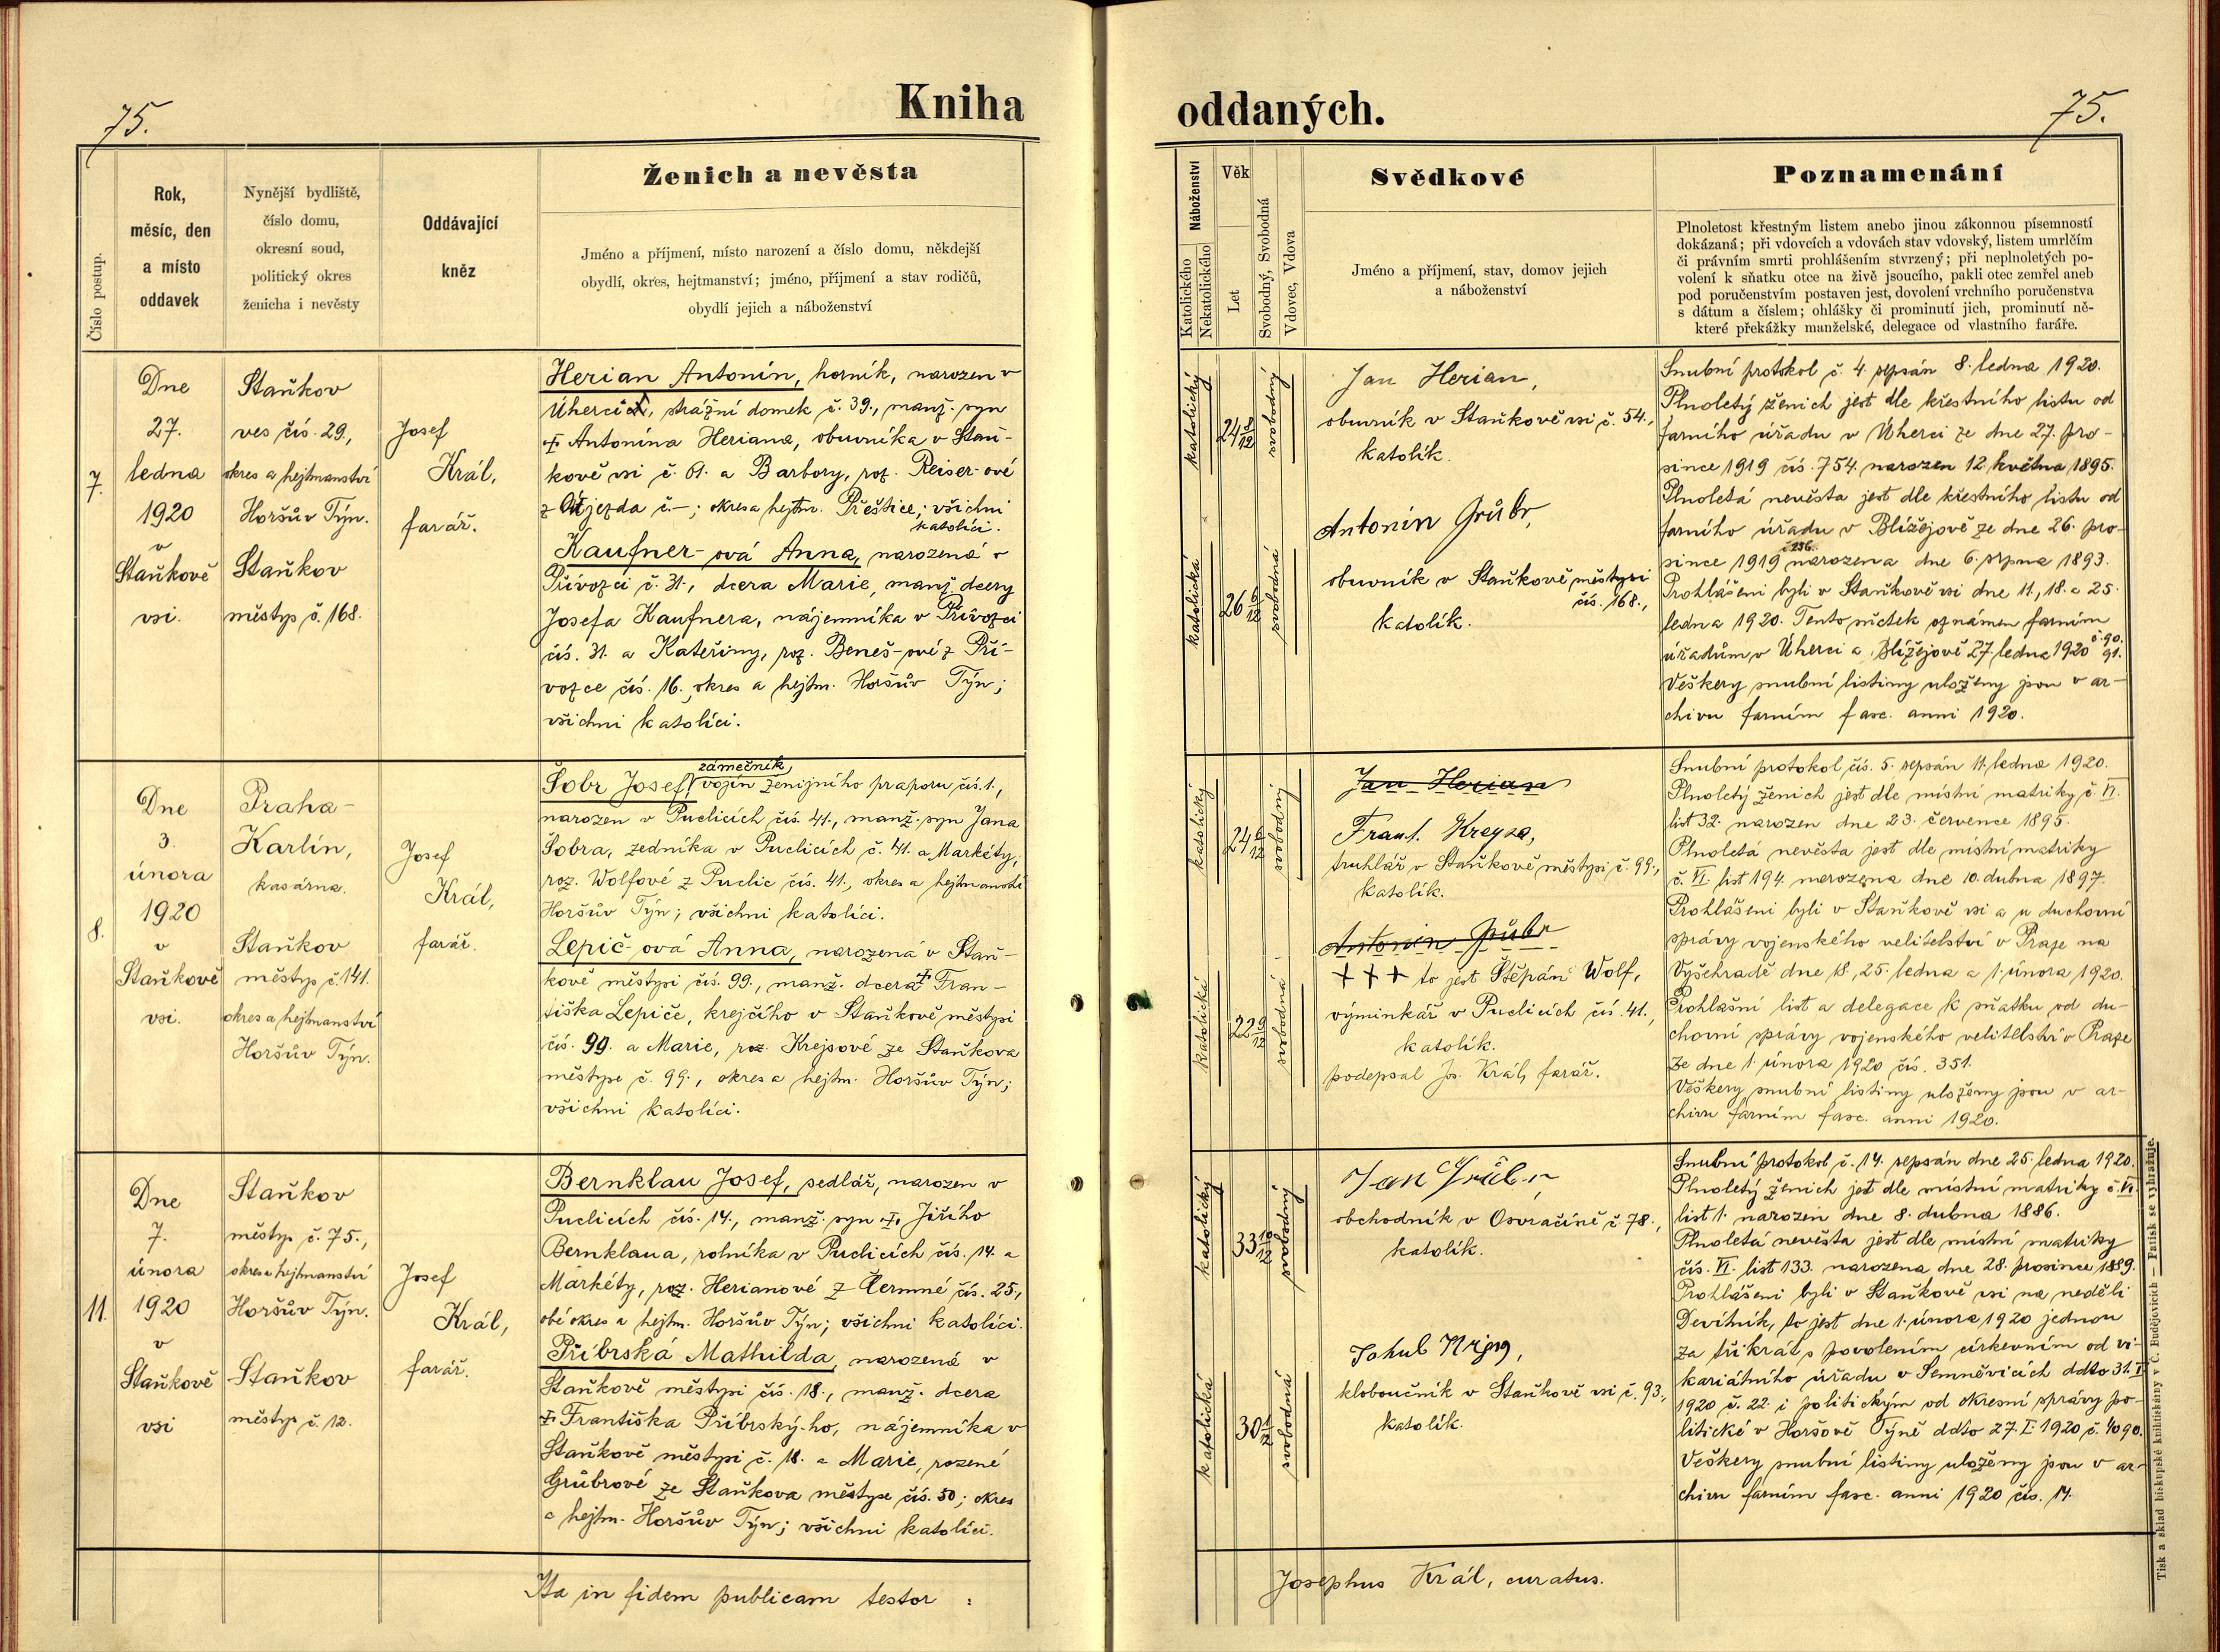 75.
Kniha
oddaných.
75.
Číslo postup.
Rok,
měsíc, den
a místo
oddavek
Nynější bydliště,
číslo domu,
okresní soud,
politický okres
ženicha i nevěsty
Oddávající
kněz
Ženich a nevěsta
Jméno a příjmení, místo narození a číslo domu, někdejší
obydlí, okres, hejtmanství; jméno, příjmení a stav rodičů,
obydlí jejich a náboženství
Náboženství
Katolického
Nekatolického
Věk
Let
Svobodný, Svobodná
Vdovec, Vdova
Svědkové
Jméno a příjmení, stav, domov jejich
a náboženství
Poznamenání
Plnoletost křestným listem anebo jinou zákonnou písemností
dokázaná; při vdovcích a vdovách stav vdovský, listem umrlčím
či právním smrti prohlášením stvrzený; při neplnoletých po-
volení k sňatku otce na živě jsoucího, pakli otec zemřel aneb
pod poručenstvím postaven jest, dovolení vrchního poručenstva
s dátum a číslem; ohlášky či prominutí jich, prominutí ně-
které překážky manželské, delegace od vlastního faráře.
7.
Dne
27.
ledna
1920
v
Staňkově
vsi.
Staňkov
ves čís. 29.,
okres a hejtmanství
Horšův Týn.
Staňkov
městys č. 168.
Josef
Král,
farář.
Herian Antonín, horník, narozen v
Úherci, strážní domek č. 39., manž. syn
† Antonína Heriana, obuvníka v Staň-
kově vsi č. 61. a Barbory, roz. Reiser-ové
z Újezda č.–; okres a hejtm. Přeštice; všichni
katolíci.
Kaufner-ová Anna, narozená v
Přívozci č. 31., dcera Marie, manž. dcery
Josefa Kaufnera, nájemníka v Přívozci
čís. 31. a Kateřiny, roz. Beneš-ové z Pří-
vozce čís. 16., okres a hejtm. Horšův Týn;
všichni katolíci.
katolický
24 8/12
svobodný
katolická
26 5/12
svobodná
Jan Herian,
obuvník v Staňkově vsi č. 54.,
katolík.
Antonín Grůbr,
obuvník v Staňkově městysi
čís. 168.,
katolík.
Snubní protokol č. 4. sepsán 8. ledna 1920.
Plnoletý ženich jest dle křestního listu od
farního úřadu v Úherci ze dne 27. pro-
since 1919 čís. 754. narozen 12. května 1895.
Plnoletá nevěsta jest dle křestního listu od
farního úřadu v Blížejově ze dne 26. pro-
č. 236.
since 1919 narozena dne 6. srpna 1893.
Prohlášeni byli v Staňkově vsi dne 11., 18. a 25.
ledna 1920. Tento sňatek oznámen farním
úřadům v Úherci a Blížejově 27. ledna 1920 č. 90. 91.
Veškery snubní listiny uloženy jsou v ar-
chivu farním fasc. anni 1920.
8.
Dne
3.
února
1920
v
Staňkově
vsi.
Praha-
Karlín,
kasárna.
Staňkov
městys č. 141.
okres a hejtmanství
Horšův Týn.
Josef
Král,
farář.
zámečník,
Šobr Josef, vojín ženijního praporu čís. 1.,
narozen v Puclicích čís. 41., manž. syn Jana
Šobra, zedníka v Puclicích č. 41. a Markéty,
roz. Wolfové z Puclic čís. 41., okres a hejtmanství
Horšův Týn; všichni katolíci.
Lepič-ová Anna, narozená v Staň-
kově městysi čís. 99., manž. dcera † Fran-
tiška Lepiče, krejčího v Staňkově městysi
čís. 99. a Marie, roz. Krejsové ze Staňkova
městyse č. 99., okres a hejtm. Horšův Týn;
všichni katolíci.
katolický
24 6/12
svobodný
katolická
22 9/12
svobodná
Jan Herian
Frant. Kreysa,
truhlář v Staňkově městysi č. 99.,
katolík.
Antonín Grůbr
+++ to jest Štěpán Wolf,
výminkář v Puclicích čís. 41.,
katolík.
podepsal Jos. Král, farář.
Snubní protokol čís. 5. sepsán 11. ledna 1920.
Plnoletý ženich jest dle místní matriky č. VI.
list 32. narozen dne 23. července 1895.
Plnoletá nevěsta jest dle místní matriky
č. VI. list 194. narozena dne 10. dubna 1897.
Prohlášeni byli v Staňkově vsi a u duchovní
správy vojenského velitelství v Praze na
Vyšehradě dne 18., 25. ledna a 1. února 1920.
Prohlašní list a delegace k sňatku od du-
chovní správy vojenského velitelství v Praze
ze dne 1. února 1920 čís. 351.
Veškery snubní listiny uloženy jsou v ar-
chivu farním fasc. anni 1920.
11.
Dne
7.
února
1920
v
Staňkově
vsi
Staňkov
městys č. 75.,
okres a hejtmanství
Horšův Týn.
Staňkov
městys č. 12.
Josef
Král,
farář.
Bernklau Josef, sedlář, narozen v
Puclicích čís. 14., manž. syn † Jiřího
Bernklaua, rolníka v Puclicích čís. 14. a
Markéty, roz. Herianové z Čermné čís. 25.,
obé okres a hejtm. Horšův Týn; všichni katolíci.
Příbrská Mathilda, narozená v
Staňkově městysi čís. 18., manž. dcera
† Františka Příbrský-ho, nájemníka v
Staňkově městysi č. 18. a Marie, rozené
Grůbrové ze Staňkova městyse čís. 50; okres
a hejtm. Horšův Týn; všichni katolíci.
katolický
33 10/12
svobodný
katolická
30 1/12
svobodná
Jan Grůbr,
obchodník v Osvračíně č. 78.,
katolík.
kloboučník v Staňkově vsi č. 93.,
katolík.
Snubní protokol č. 14. sepsán dne 25. ledna 1920.
Plnoletý ženich jest dle místní matriky č. VI.
list 1. narozen dne 8. dubna 1886.
Plnoletá nevěsta jest dle místní matriky
čís. VI. list 133. narozena dne 28. prosince 1889.
Prohlášeni byli v Staňkově vsi na neděli
Devítník, to jest dne 1. února 1920 jednou
za třikrát s povolením církevním od vi-
kariátního úřadu v Semněvicích ddto 31. I.
1920 č. 22. i politickým od okresní správy po-
litické v Horšově Týně ddto 27. I. 1920 č. 4090.
Veškery snubní listiny uloženy jsou v ar-
chivu farním fasc. anni 1920 čís. 14.
Ita in fidem publicam testor :
Josephus Král, curatus.
Tisk a sklad biskupské knihtiskárny v Č. Budějovicích — Patisk se vyhražuje.